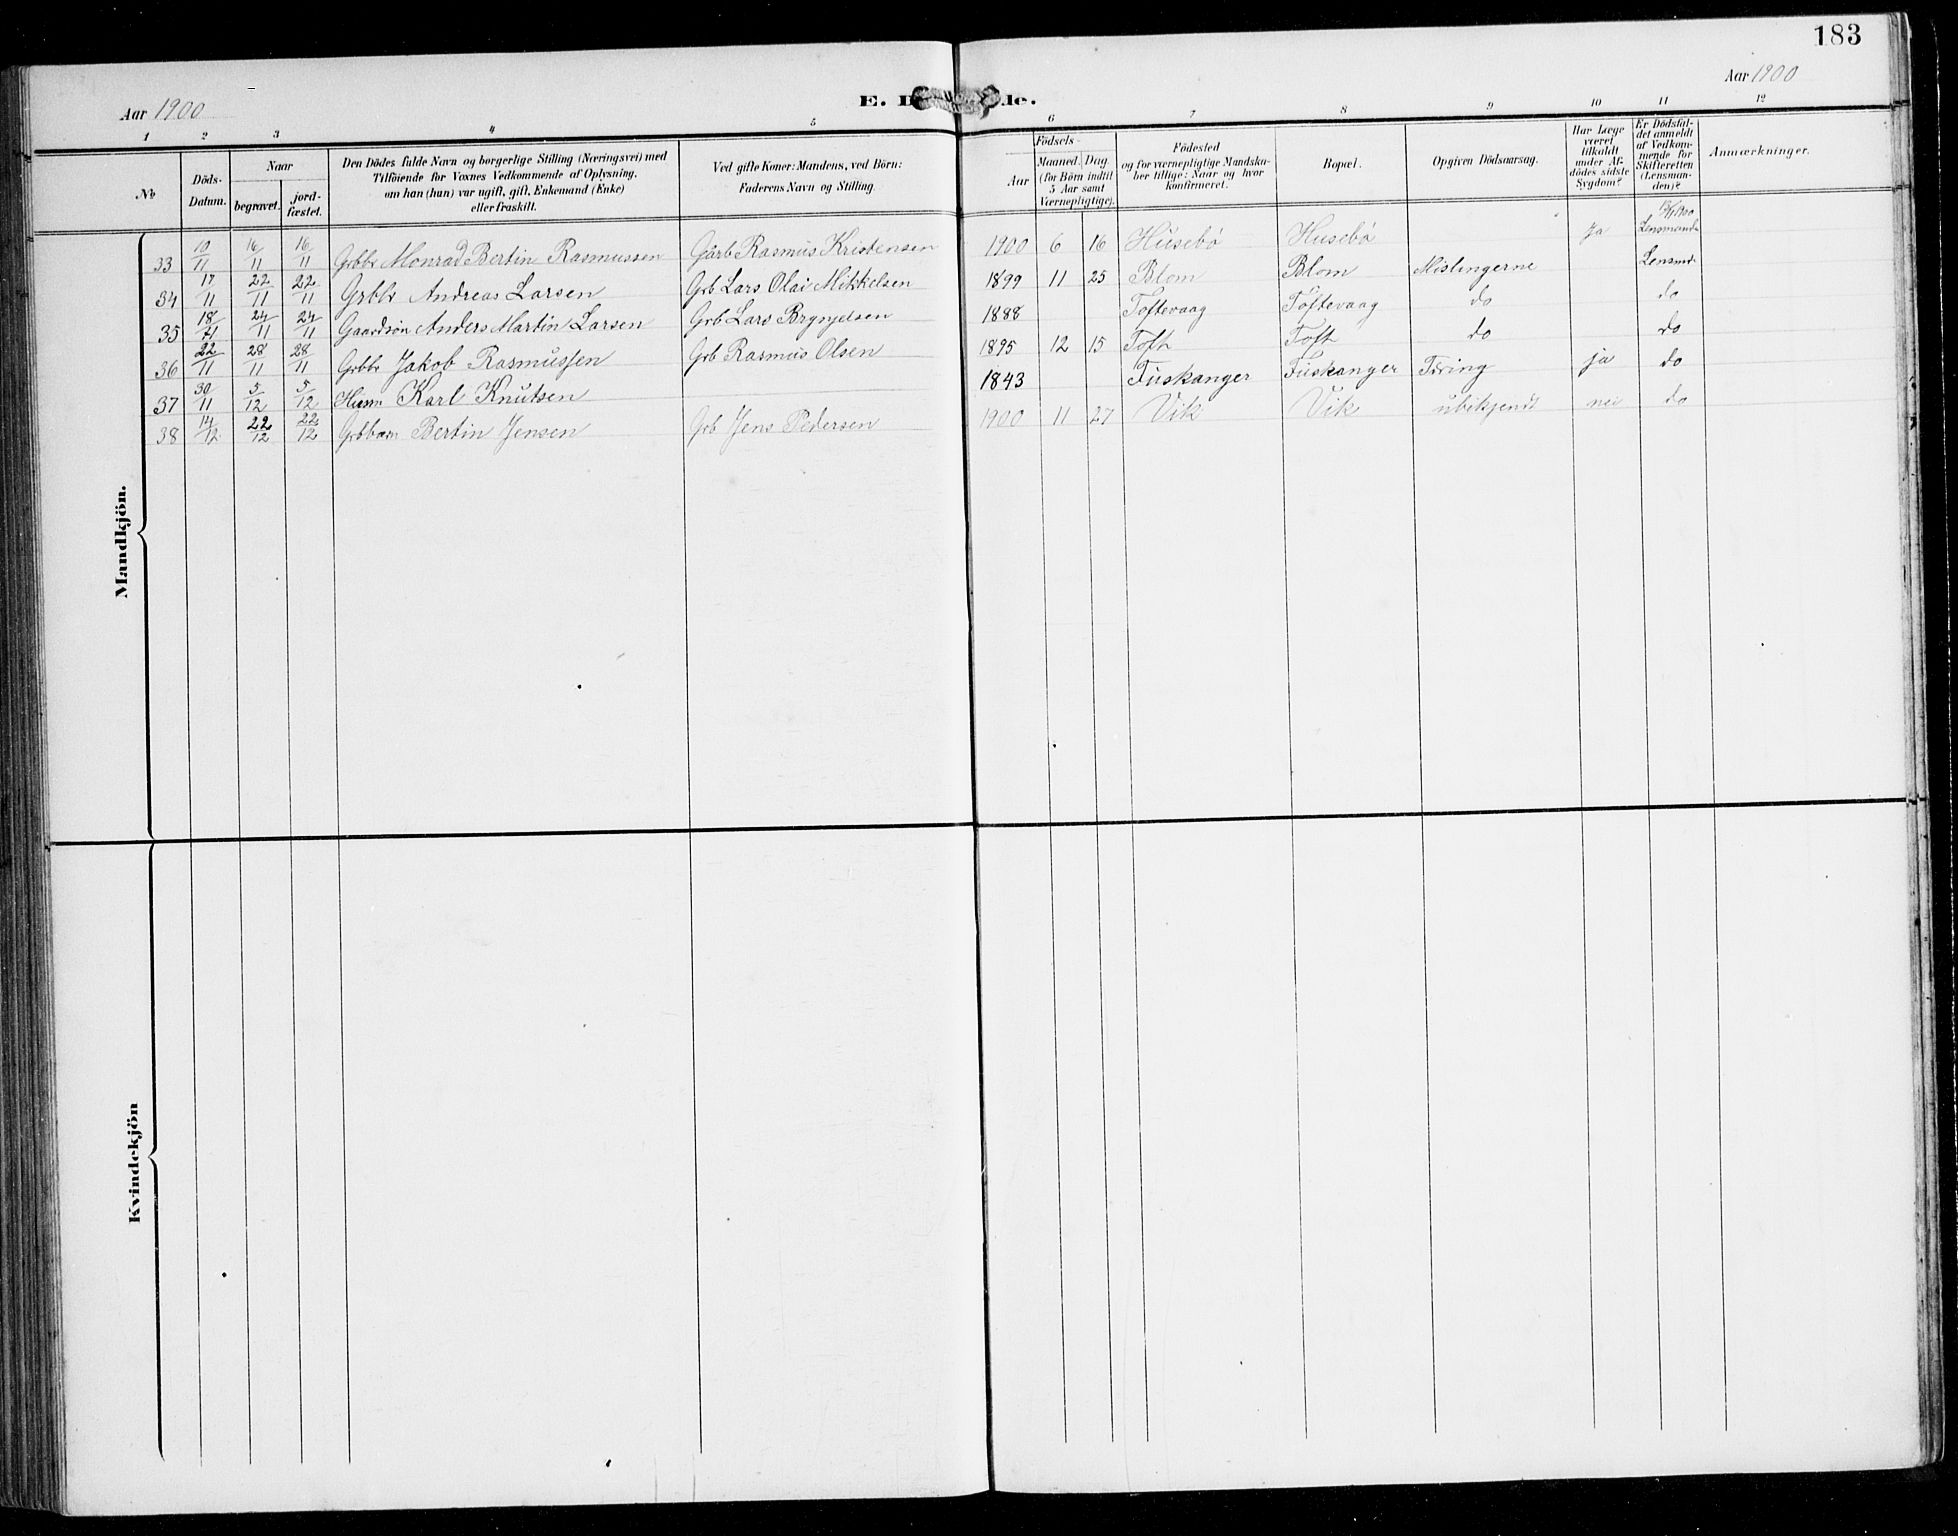 183
Aar 1900
E. D de.
Aar 1900
1 2 3 4 5 6 7 8 9 10 11 12
No
Döds-Datum.
Naar
begravet.
jord-fæstet.
Den Dödes fulde Navn og borgerlige Stilling (Næringsvei) med
Tilföiende for Voxnes Vedkommende af Oplysning.
om han (hun) var ugift, gift, Enkemand (Enke)
eller fraskilt.
Ved gifte Koner: Mandens, ved Börn:
Faderens Navn og Stilling.
Födsels-
Aar
Maaned. Dag.
(for Börn indtil
5 Aar samt
Værnepligtige).
Födested
og for værnepligtige Mandska-
ber tillige: Naar og hvor
konfirmeret.
Bopæl.
Opgiven Dödsaarsag.
Har Læge
været
tilkaldt
under Af-
dödes sidste
Sygdom?
Er Dödsfal-
det anmeldt
af Vedkom-
mende for
Skifteretten
(Lensman-
den)?
Anmærkninger.
Mandkjön.
33 10/11 16/11 16/11 Grbbr Monrad Bertin Rasmussen Garb Rasmus Kristensen 1900 6 16 Husebø Husebø Ja Lensmand
34 17/11 22/11 22/11 Grbbr Andreas Larsen Grb Lars Olai Mikkelsen 1899 11 25 Blom Blom Mislingerne Lensmd
35 18/11 24/11 24/11 Gaardsøn Anders Martin Larsen Grb Lars Brynjelsen 1888 Toftevaag Toftevaag do do
36 22/11 28/11 28/11 Grbbr Jakob Rasmussen Grb Rasmus Olsen 1895 12 15 Toft Toft do do
37 30/11 5/12 5/12 Husm Karl Knutsen 1843 Fuskanger Fuskanger Tæring ja do
38 14/12 22/12 22/12 Grbbarn Bertin Jensen Grb Jens Pedersen 1900 11 27 Vik Vik ubekjendt nei do
Kvindekjön